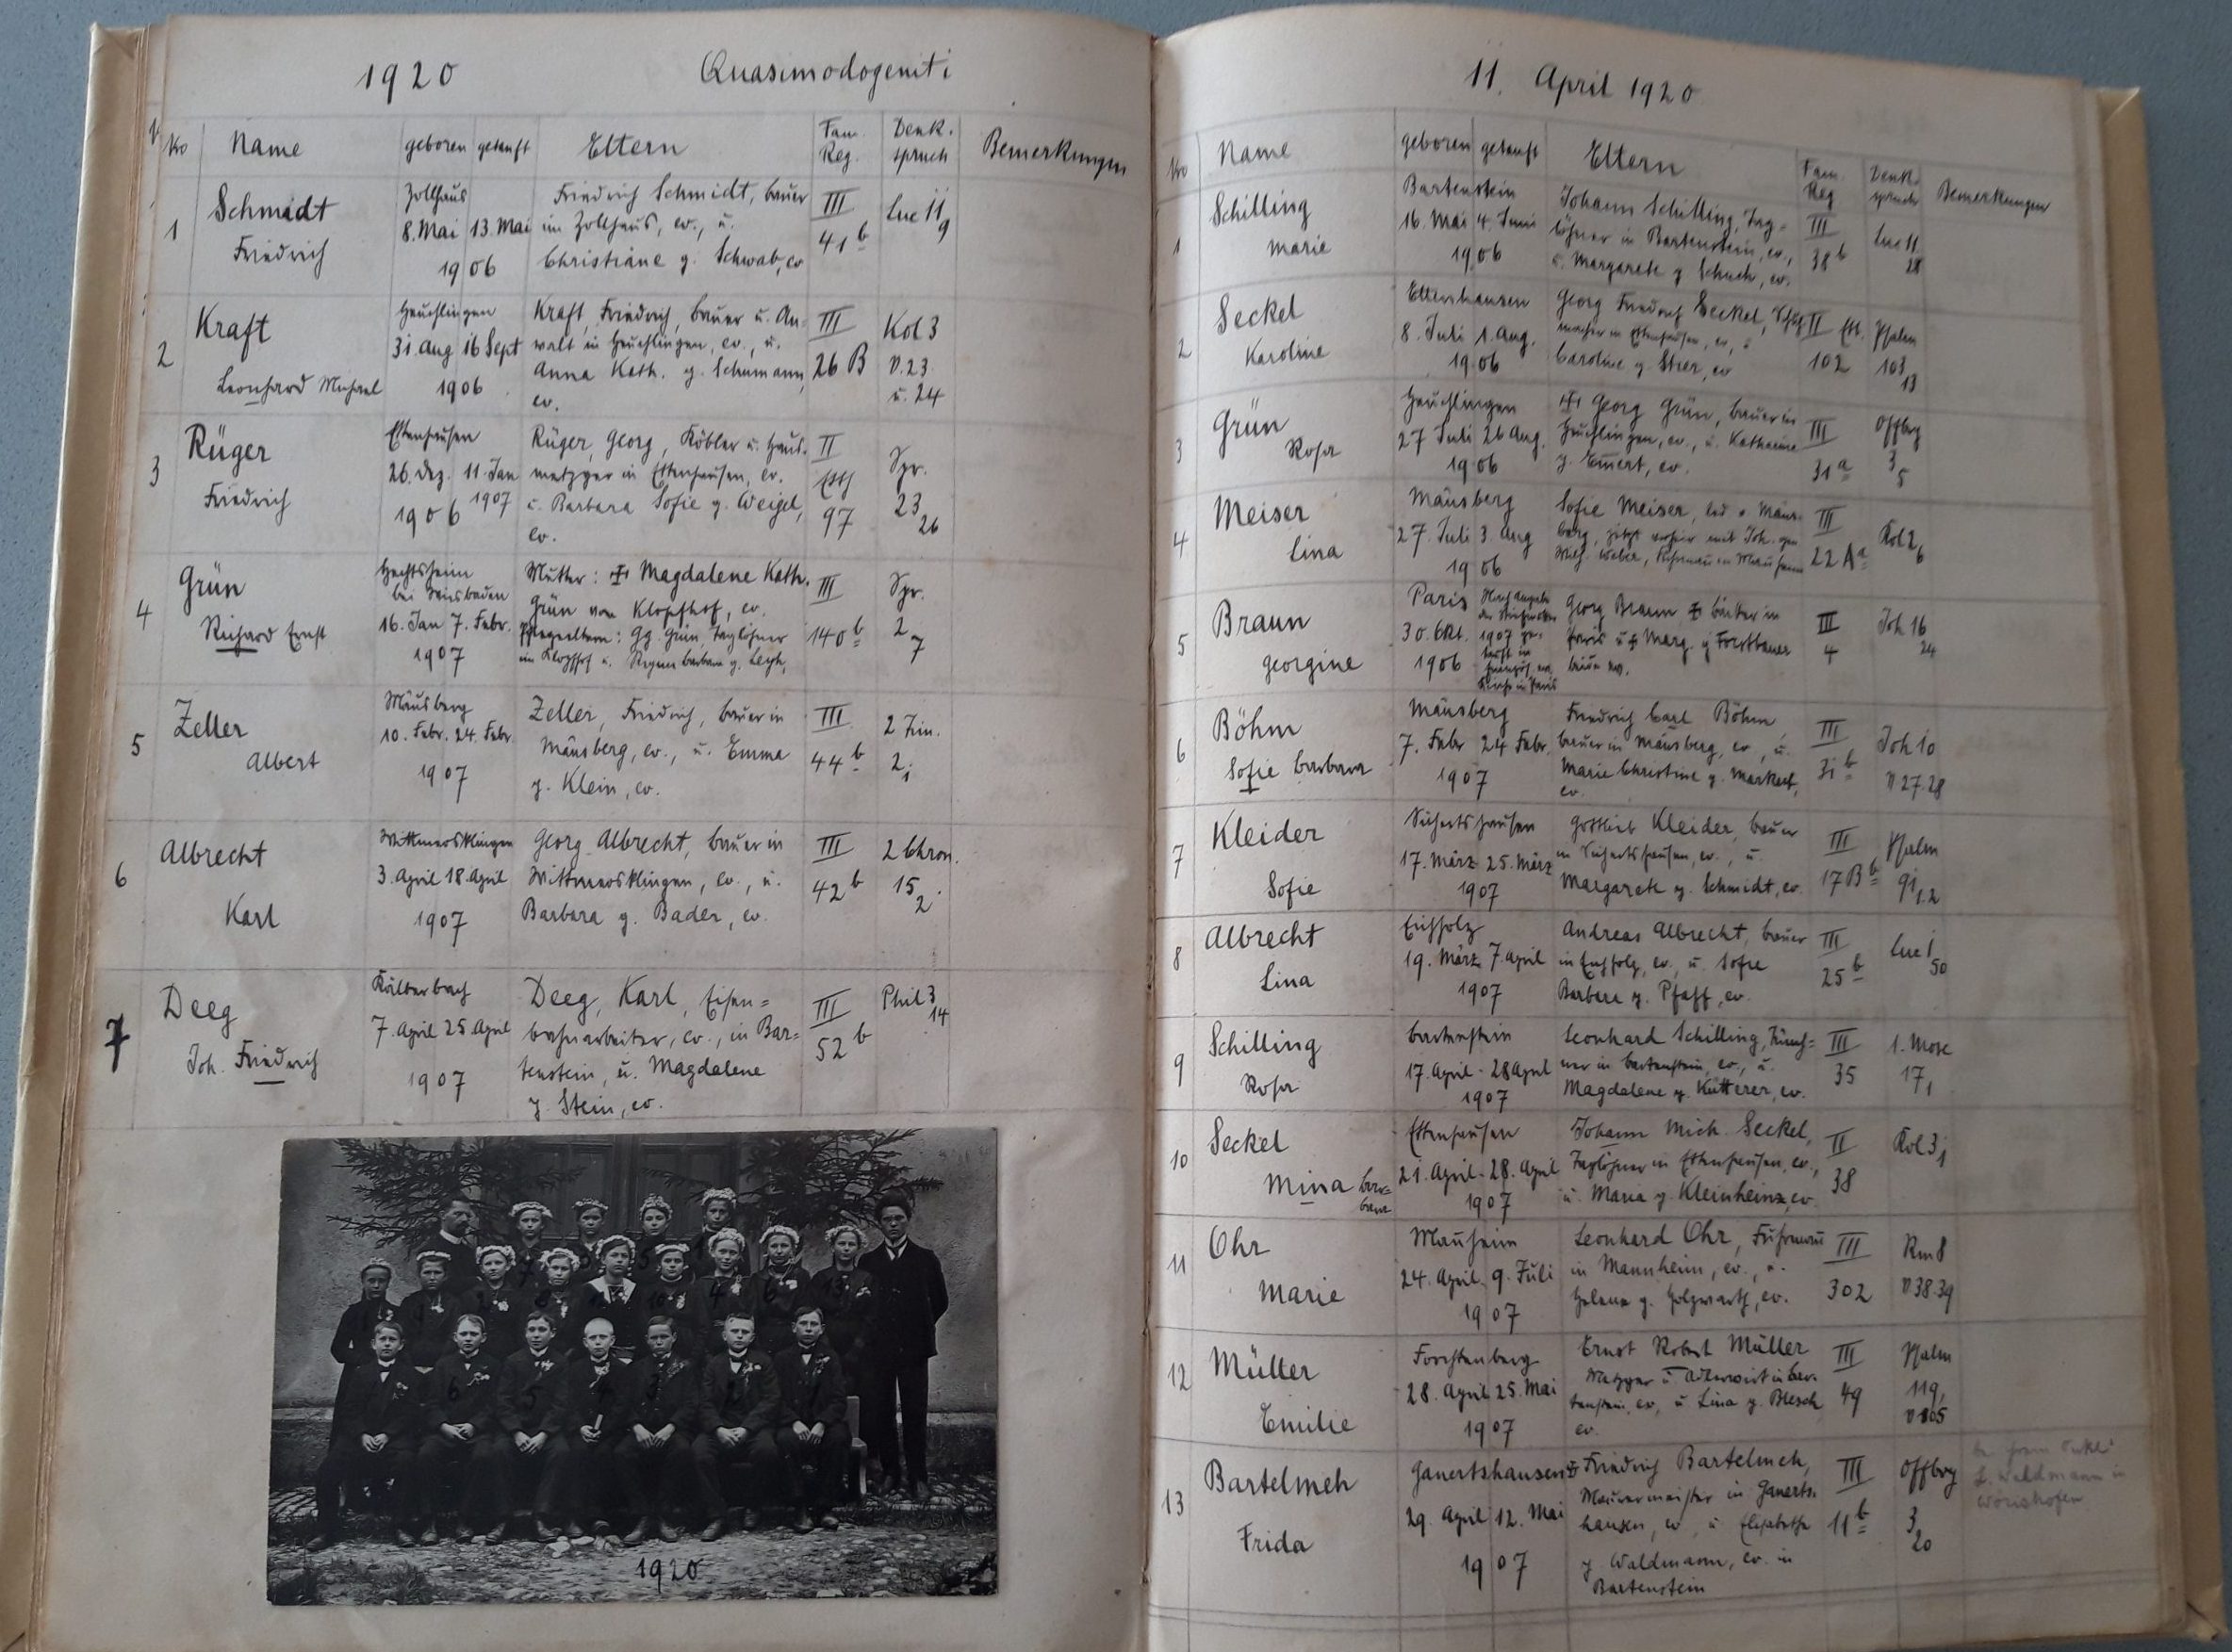 1920 Quasimodogeniti
No Name geboren getauft Eltern Fam. Reg. Denk. spruch Bemerkungen
1 Schmidt Friedrich
Zollhaus
8. Mai 13. Mai
1906
Friedrich Schmidt, Bauer
im Zollhaus, ev., u.
Christiane g. Schwab, ev
III
41 b
Luc 11
9
2 Kraft
Leonhard Michael
Heuchlingen
31. Aug 16 Sept
1906
Kraft, Friedrich, Bauer u. An-
walt in Heuchlingen, ev., u.
Anna Kath. g. Schumann,
ev.
III
26 B
Kol 3
V. 23
u. 24
3 Rüger
Friedrich
Ettenhausen
26. Dez. 11. Jan
1906 1907
Rüger, Georg, Köbler u. Haus-
metzger in Ettenhausen, ev.
u. Barbara Sofie g. Weigel,
ev.
II
Etth
97
Spr.
23
26
4 Grün
Richard Ernst
Hechtsheim
bei Wiesbaden
16. Jan 7. Febr.
1907
Mutter: Magdalene Kath.
Grün von Klopfhof, ev.
Pflegeeltern: Gg. Grün, Taglöhner
im Klopfhof u. Regine Barbara g. Leyh,
III
140 b
Spr.
2
7
5 Zeller
Albert
Mäusberg
10. Febr. 24. Febr.
1907
Zeller, Friedrich, Bauer in
Mäusberg, ev., u. Emma
g. Klein, ev.
III
44 b
2 Tim.
2,1
6 Albrecht
Karl
Wittmersklingen
3. April 18. April
1907
Georg Albrecht, Bauer in
Wittmersklingen, ev., u.
Barbara g. Bader, ev.
III
42 b
2 Chron.
15
2.
7 Deeg
Joh. Friedrich
Kälberbach
7. April 25. April
1907
Deeg, Karl, Eisen=
bahnarbeiter, ev., in Bar=
tenstein, u. Magdalene
g. Stein, ev.
III
52 b
Phil 3
14
1920
11. April 1920
No Name geboren getauft Eltern Fam. Reg Denk. spruch Bemerkungen
1 Schilling
Marie
Bartenstein
16. Mai 4. Juni
1906
Johann Schilling, Tag=
löhner in Bartenstein, ev.,
u. Margarete g Schuch, ev.
III
38 b
Luc 11
28
2 Seckel
Karoline
Ettenhausen
8. Juli 1. Aug.
1906
Georg Friedrich Seckel,
macher in Ettenhausen, ev, u
Caroline g. Stier, ev
II Ett.
102
Psalm
103
13
3 Grün
Rosa
Heuchlingen
27 Juli 26 Aug.
1906
Georg Grün, Bauer in
Heuchlingen, ev., u. Katharine
g. Emert, ev.
III
31 a
Offbg
3
5
4 Meiser
Lina
Mäusberg
27. Juli 3. Aug
1906
Sofie Meiser, led. v. Mäus-
berg, jetzt verheir. mit Joh.
Wilh. Weber, Fuhrmann in Mannheim
III
22 A a
Kol 2
6
5 Braun
Georgine
Paris
30. Okt.
1906
Nach Angabe
1907 ge-
tauft in
Kirche in Paris
Georg Braun Bäcker in
Paris u Marg. g Forstbauer
beide ev.
III
4
Joh 16
24
6 Böhm
Sofie Barbara
Mäusberg
7. Febr 24 Febr.
1907
Friedrich Carl Böhm,
Bauer in Mäusberg, ev, u.
Marie Christine g. Markert,
ev.
III
31 b
Joh 10
V 27.28
7 Kleider
Sofie
Sichertshausen
17. März 25. März
1907
Gottlieb Kleider, Bauer
in Sichertshausen, ev., u.
Margarete g. Schmidt, ev.
III
17 B b
Psalm
91,1.2
8 Albrecht
Lina
Eichholz
19. März 7. April
1907
Andreas Albrecht, Bauer
in Eichholz, ev., u. Sofie
Barbara g. Pfaff, ev.
III
25 b
Luc 1
50
9 Schilling
Rosa
Bartenstein
17. April - 28 April
1907
Leonhard Schilling, Tünch=
ner in Bartenstein, ev., u.
Magdalene g. Kütterer, ev.
III
35
1. Mose
17,1
10 Seckel
Mina Bar=
bara
Ettenhausen
21. April - 28. April
1907
Johann Mich. Seckel,
Taglöhner in Ettenhausen, ev.,
u. Maria g Kleinheinz, ev.
II
38
Kol 3,1
11 Ohr
Marie
Mannheim
24. April 9. Juli
1907
Leonhard Ohr, Fuhrmann
in Mannheim, ev., u.
Helene g. Holzwarth, ev.
III
302
Rm 8
V 38.39
12 Müller
Emilie
Forchtenberg
28. April 25. Mai
1907
Ernst Robert Müller
Metzger u. Adlerwirt in Bar-
tenstein, ev, u Lina g. Blesch
ev.
III
49
Psalm
119,
V 105
13 Bartelmeh
Frida
Ganertshausen
29. April 12. Mai
1907
Friedrich Bartelmeh,
Maurermeister in Ganerts-
hausen, ev u Elisabethe
g. Waldmann, ev. in
Bartenstein
III
11 b
Offbg
3
20
Waldmann in
Wörishofen